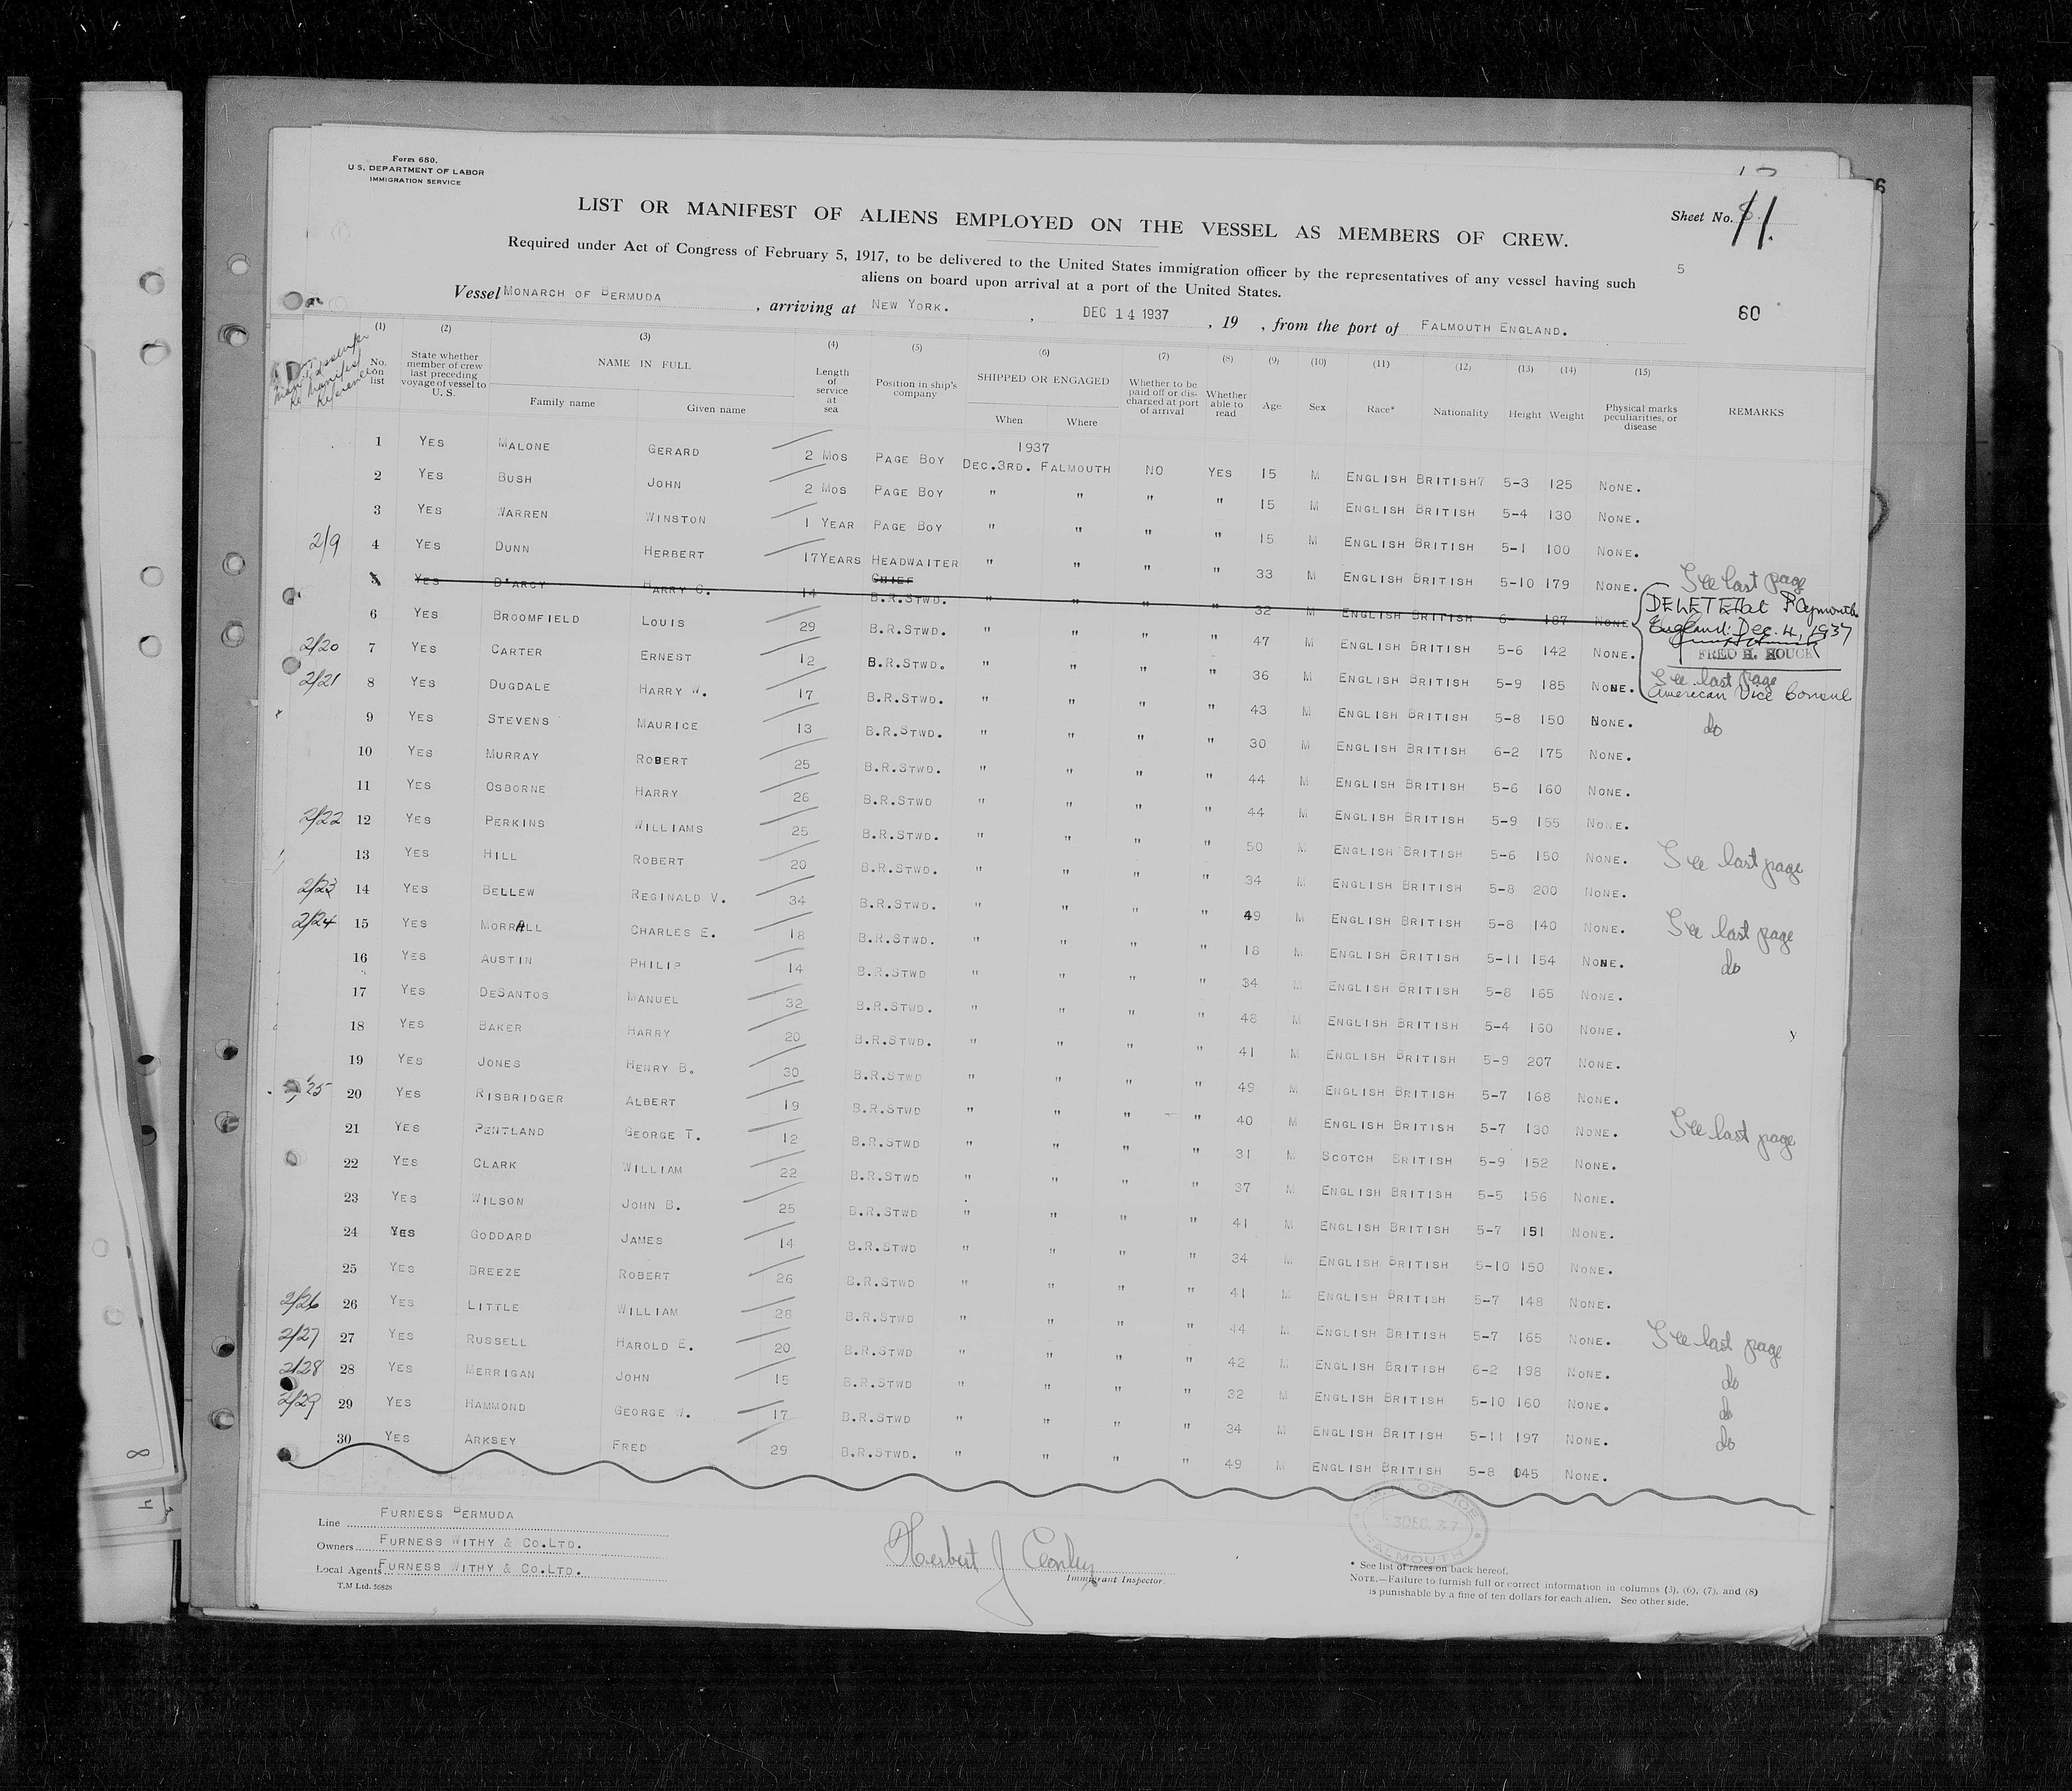 Form 680.
U.S. DEPARTMENT OF LABOR
IMMIGRATION SERVICE
Sheet No. 11.
LIST OR MANIFEST OF ALIENS EMPLOYED ON THE VESSEL AS MEMBERS OF CREW.
Required under Act of Congress of February 5, 1917, to be delivered to the United States immigration officer by the representatives of any vessel having such
aliens on board upon arrival at a port of the United States.
5
60
Vessel MONARCH OF BERMUDA, arriving at NEW YORK., DEC 14 1937, 19 , from the port of FALMOUTH ENGLAND.
(1) (2) (3) (4) (5) (6) (7) (8) (9) (10) (11) (12) (13) (14) (15)
No. on list | State whether member of crew last preceding voyage of vessel to U. S. | NAME IN FULL Family name Given name | Length of service at sea | Position in ship's company | SHIPPED OR ENGAGED When Where | Whether to be paid off or discharged at port of arrival | Whether able to read | Age | Sex | Race* | Nationality | Height | Weight | Physical marks peculiarities, or disease | REMARKS
1937
1 YES MALONE GERARD 2 MOS PAGE BOY DEC.3RD. FALMOUTH NO YES 15 M ENGLISH BRITISH 5-3 125 NONE.
2 YES BUSH JOHN 2 MOS PAGE BOY " " " " 15 M ENGLISH BRITISH 5-4 130 NONE.
3 YES WARREN WINSTON 1 YEAR PAGE BOY " " " " 15 M ENGLISH BRITISH 5-1 100 NONE.
2/9 4 YES DUNN HERBERT 17YEARS HEADWAITER " " " " 33 M ENGLISH BRITISH 5-10 179 NONE. See last page
5 YES D'ARCY HARRY C. 14 CHIEF B.R.STWD. " " " " 32 M ENGLISH BRITISH 6- 187 NONE DELETED at Plymouth
England: Dec. 4, 1937
FRED H. HOUCK
American Vice Consul
6 YES BROOMFIELD LOUIS 29 B.R.STWD. " " " " 47 M ENGLISH BRITISH 5-6 142 NONE.
2/20 7 YES CARTER ERNEST 12 B.R.STWD. " " " " 36 M ENGLISH BRITISH 5-9 185 NONE. See last page
2/21 8 YES DUGDALE HARRY W. 17 B.R.STWD. " " " " 43 M ENGLISH BRITISH 5-8 150 NONE. do
9 YES STEVENS MAURICE 13 B.R.STWD. " " " " 30 M ENGLISH BRITISH 6-2 175 NONE.
10 YES MURRAY ROBERT 25 B.R.STWD. " " " " 44 M ENGLISH BRITISH 5-6 160 NONE.
11 YES OSBORNE HARRY 26 B.R.STWD " " " " 44 M ENGLISH BRITISH 5-9 155 NONE.
2/22 12 YES PERKINS WILLIAMS 25 B.R.STWD. " " " " 50 M ENGLISH BRITISH 5-6 150 NONE. See last page
13 YES HILL ROBERT 20 B.R.STWD. " " " " 34 M ENGLISH BRITISH 5-8 200 NONE.
2/23 14 YES BELLEW REGINALD V. 34 B.R.STWD. " " " " 49 M ENGLISH BRITISH 5-8 140 NONE. See last page
2/24 15 YES MORRALL CHARLES E. 18 B.R.STWD. " " " " 18 M ENGLISH BRITISH 5-11 154 NONE. do
16 YES AUSTIN PHILIP 14 B.R.STWD " " " " 34 M ENGLISH BRITISH 5-8 165 NONE.
17 YES DESANTOS MANUEL 32 B.R.STWD. " " " " 48 M ENGLISH BRITISH 5-4 160 NONE.
18 YES BAKER HARRY 20 B.R.STWD. " " " " 41 M ENGLISH BRITISH 5-9 207 NONE.
19 YES JONES HENRY B. 30 B.R.STWD " " " " 49 M ENGLISH BRITISH 5-7 168 NONE.
20 YES RISBRIDGER ALBERT 19 B.R.STWD " " " " 40 M ENGLISH BRITISH 5-7 130 NONE. See last page
21 YES PENTLAND GEORGE T. 12 B.R.STWD " " " " 31 M SCOTCH BRITISH 5-9 152 NONE.
22 YES CLARK WILLIAM 22 B.R.STWD " " " " 37 M ENGLISH BRITISH 5-5 156 NONE.
23 YES WILSON JOHN B. 25 B.R.STWD " " " " 41 M ENGLISH BRITISH 5-7 151 NONE.
24 YES GODDARD JAMES 14 B.R.STWD " " " " 34 M ENGLISH BRITISH 5-10 150 NONE.
25 YES BREEZE ROBERT 26 B.R.STWD " " " " 41 M ENGLISH BRITISH 5-7 148 NONE.
2/26 26 YES LITTLE WILLIAM 28 B.R.STWD " " " " 44 M ENGLISH BRITISH 5-7 165 NONE. See last page
2/27 27 YES RUSSELL HAROLD E. 20 B.R.STWD " " " " 42 M ENGLISH BRITISH 6-2 198 NONE. do
2/28 28 YES MERRIGAN JOHN 15 B.R.STWD " " " " 32 M ENGLISH BRITISH 5-10 160 NONE. do
2/29 29 YES HAMMOND GEORGE W. 17 B.R.STWD " " " " 34 M ENGLISH BRITISH 5-11 197 NONE. do
30 YES ARKSEY FRED 29 B.R.STWD. " " " " 49 M ENGLISH BRITISH 5-8 145 NONE.
Line FURNESS BERMUDA
Owners FURNESS WITHY & CO.LTD.
Local Agents FURNESS WITHY & CO.LTD.
T.M Ltd. 56828
Immigrant Inspector.
3DEC.37
FALMOUTH
* See list of races on back hereof.
NOTE.—Failure to furnish full or correct information in columns (3), (6), (7), and (8)
is punishable by a fine of ten dollars for each alien. See other side.